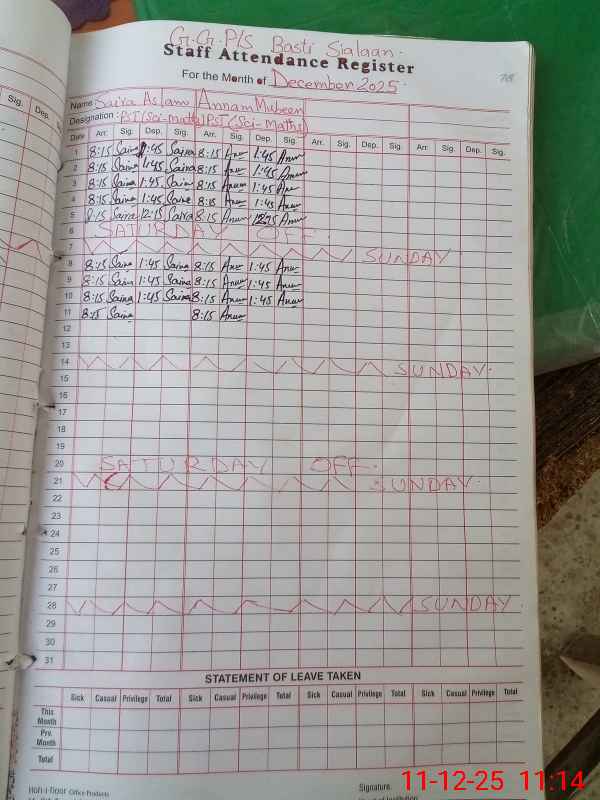 G.G.P/S Basti Sialaan.
Staff Attendance Register
For the Month of December 2025.
Sig. Dep.
Name Saira Aslam Annam Mubeen
Designation: PST (Sci-math) PST (Sci-maths)
Date Arr. Sig. Dep. Sig. Arr. Sig. Dep. Sig. Arr. Sig. Dep. Sig. Arr. Sig. Dep. Sig.
1 8:15 Saira 1:45 Saira 8:15 Anum 1:45 Anum
2 8:15 Saira 1:45 Saira 8:15 Anum 1:45 Anum
3 8:15 Saira 1:45 Saira 8:15 Anum 1:45 Anum
4 8:15 Saira 1:45 Saira 8:15 Anum 1:45 Anum
5 8:15 Saira 12:15 Saira 8:15 Anum Anum
6 SATURDAY OFF.
7 SUNDAY
8 8:15 Saira 1:45 Saira 8:15 Anum 1:45 Anum
9 8:15 Saira 1:45 Saira 8:15 Anum 1:45 Anum
10 8:15 Saira 1:45 Saira 8:15 Anum 1:45 Anum
11 8:15 Saira 8:15 Anum
12
13
14 SUNDAY.
15
16
17
18
19
20 SATURDAY OFF.
21 SUNDAY.
22
23
24
25
26
27
28 SUNDAY.
29
30
31
STATEMENT OF LEAVE TAKEN
Sick Casual Privilege Total Sick Casual Privilege Total Sick Casual Privilege Total Sick Casual Privilege Total
This Month
Prv. Month
Total
Office Products
Signature
11-12-25 11:14